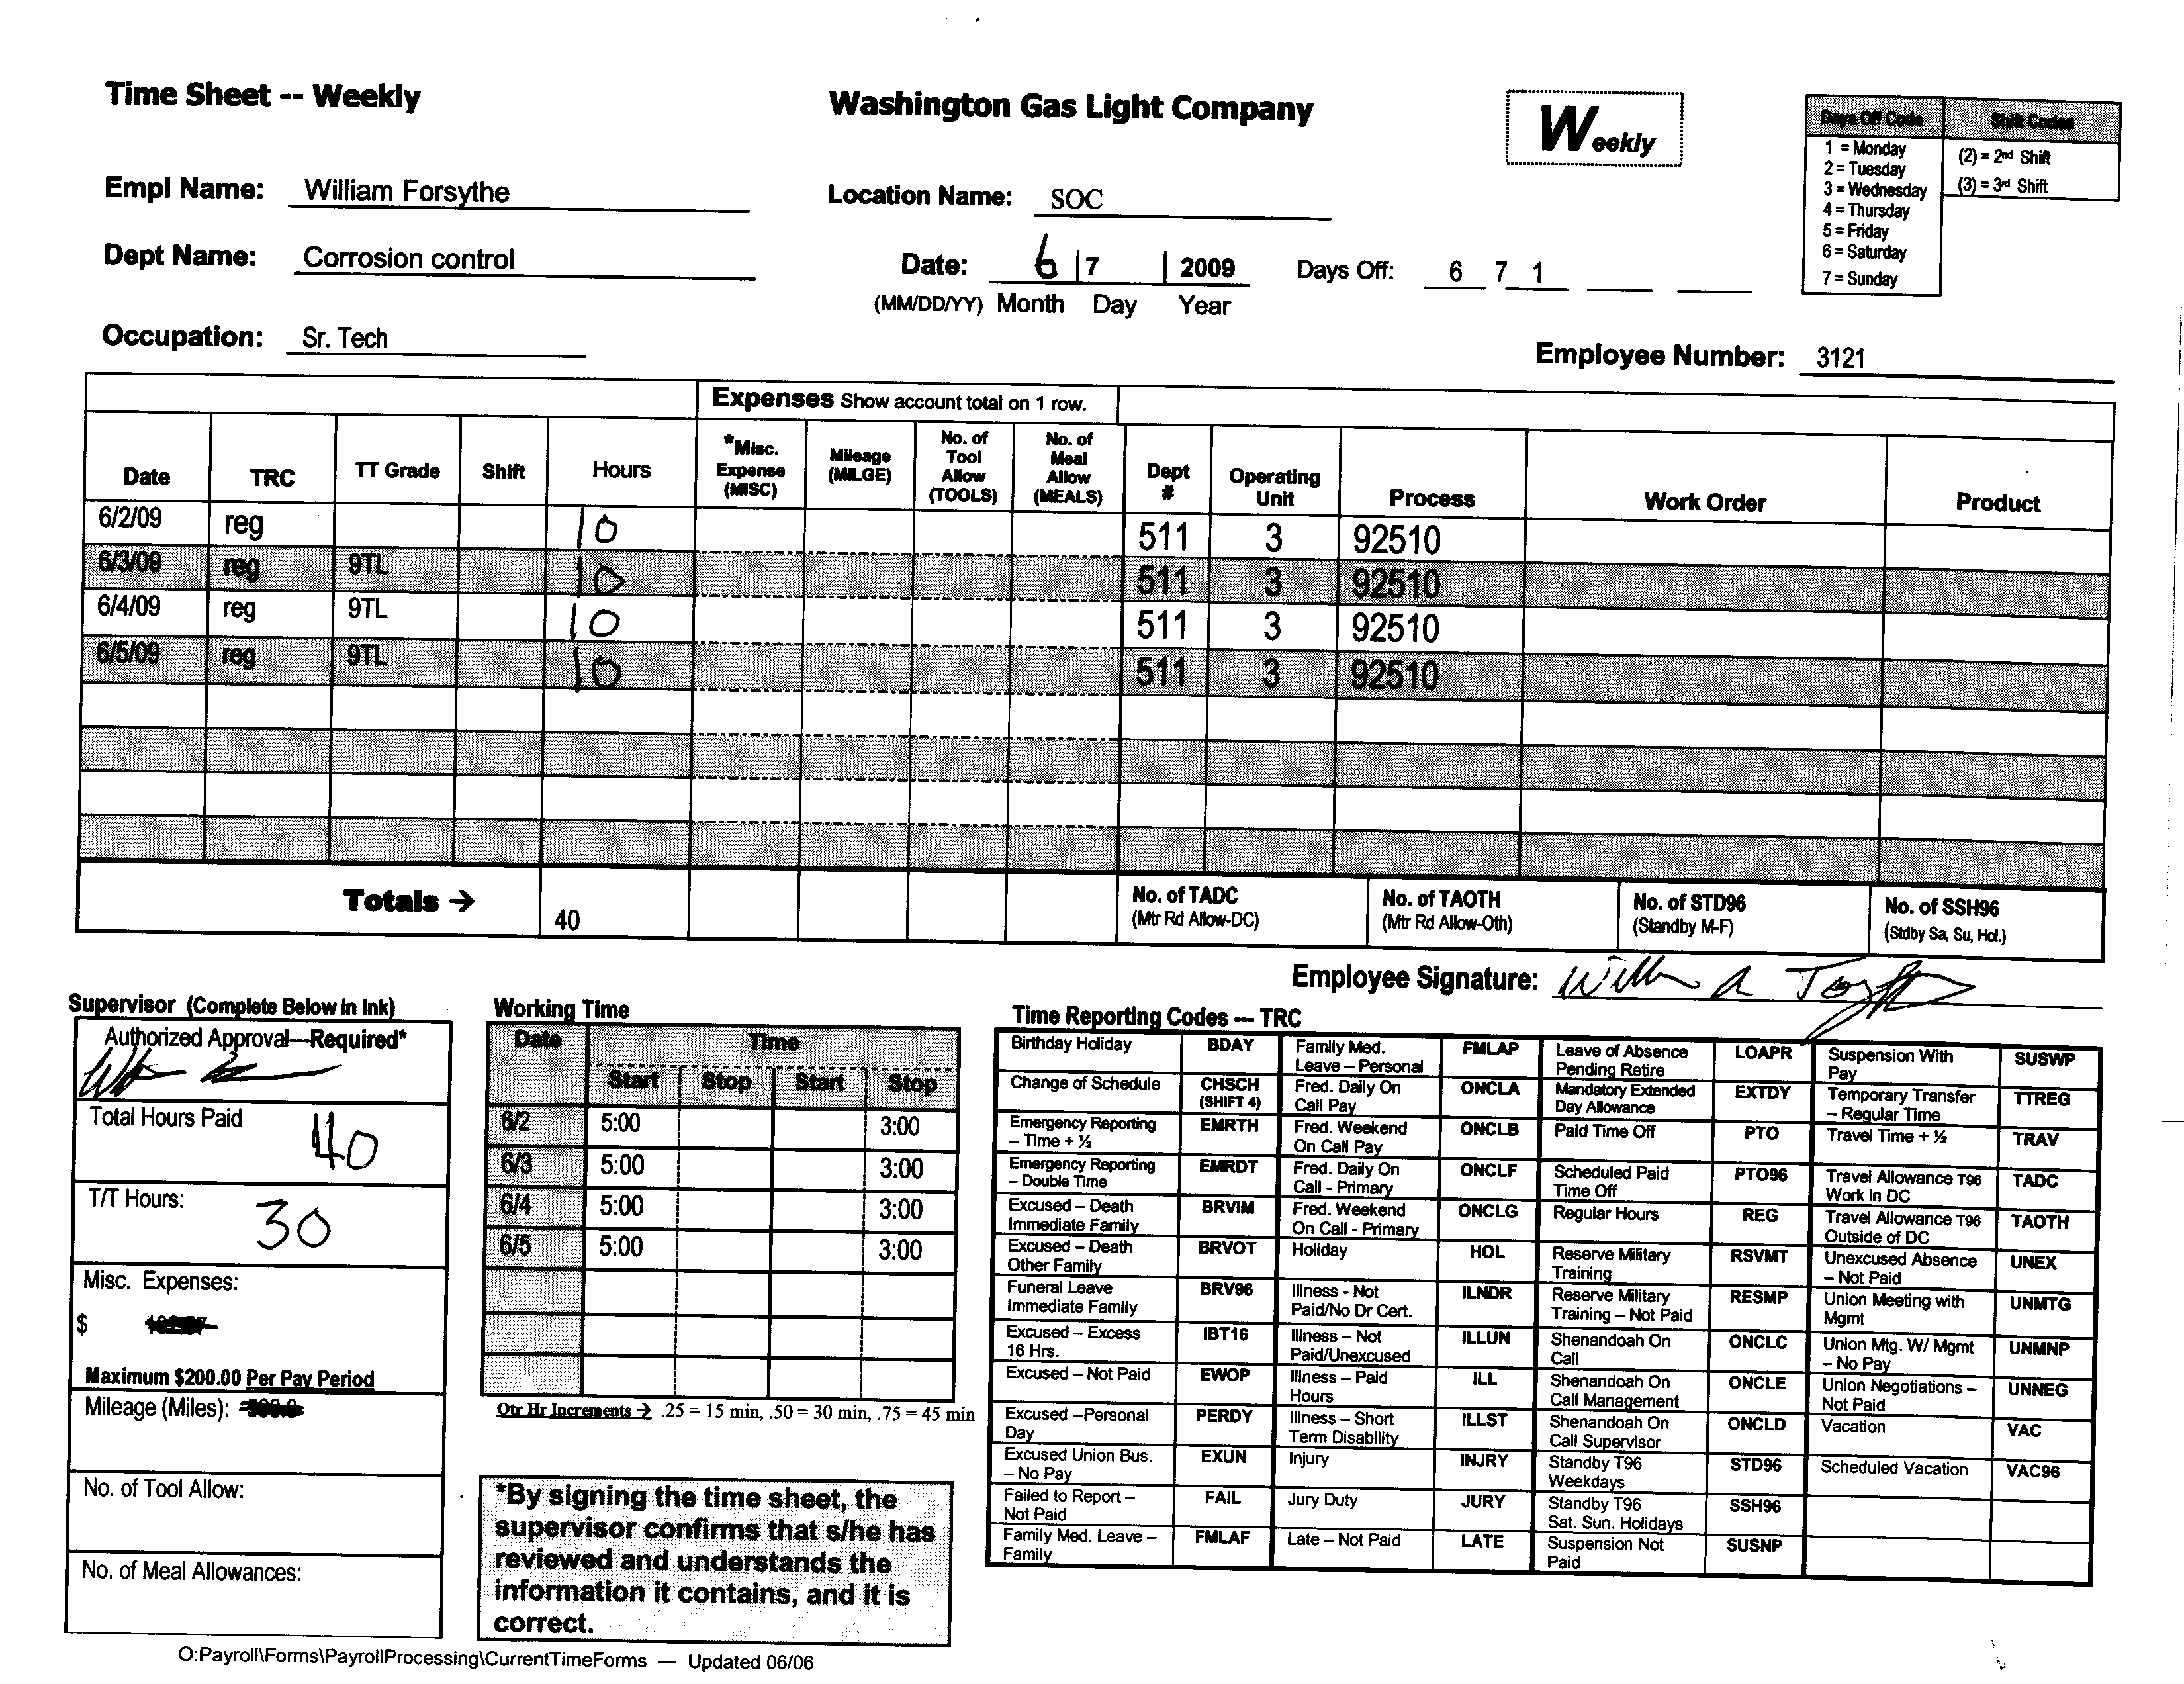 Time Sheet -- Weekly
Washington Gas Light Company
Weekly
Days Off Code Shift Codes
1 = Monday (2) = 2nd Shift
2 = Tuesday
3 = Wednesday (3) = 3rd Shift
4 = Thursday
5 = Friday
6 = Saturday
7 = Sunday
Empl Name: William Forsythe
Location Name: SOC
Dept Name: Corrosion control
Date: 6 |7 | 2009 Days Off: 6 7 1
(MM/DD/YY) Month Day Year
Occupation: Sr. Tech
Employee Number: 3121
Expenses Show account total on 1 row.
Date TRC TT Grade Shift Hours *Misc. Expense (MISC) Mileage (MILGE) No. of Tool Allow (TOOLS) No. of Meal Allow (MEALS) Dept # Operating Unit Process Work Order Product
6/2/09 reg 10 511 3 92510
6/3/09 reg 9TL 10 511 3 92510
6/4/09 reg 9TL 10 511 3 92510
6/5/09 reg 9TL 10 511 3 92510
Totals → 40 No. of TADC (Mtr Rd Allow-DC) No. of TAOTH (Mtr Rd Allow-Oth) No. of STD96 (Standby M-F) No. of SSH96 (Stdby Sa, Su, Hol.)
Employee Signature:
Supervisor (Complete Below in Ink)
Authorized Approval---Required*
Total Hours Paid 40
T/T Hours: 30
Misc. Expenses:
$
Maximum $200.00 Per Pay Period
Mileage (Miles):
No. of Tool Allow:
No. of Meal Allowances:
Working Time
Date Time
Start Stop Start Stop
6/2 5:00 3:00
6/3 5:00 3:00
6/4 5:00 3:00
6/5 5:00 3:00
Qtr Hr Increments → .25 = 15 min, .50 = 30 min, .75 = 45 min
*By signing the time sheet, the
supervisor confirms that s/he has
reviewed and understands the
information it contains, and it is
correct.
Time Reporting Codes --- TRC
Birthday Holiday BDAY Family Med. Leave – Personal FMLAP Leave of Absence Pending Retire LOAPR Suspension With Pay SUSWP
Change of Schedule CHSCH (SHIFT 4) Fred. Daily On Call Pay ONCLA Mandatory Extended Day Allowance EXTDY Temporary Transfer – Regular Time TTREG
Emergency Reporting – Time + ½ EMRTH Fred. Weekend On Call Pay ONCLB Paid Time Off PTO Travel Time + ½ TRAV
Emergency Reporting – Double Time EMRDT Fred. Daily On Call - Primary ONCLF Scheduled Paid Time Off PTO96 Travel Allowance T96 Work in DC TADC
Excused – Death Immediate Family BRVIM Fred. Weekend On Call - Primary ONCLG Regular Hours REG Travel Allowance T96 Outside of DC TAOTH
Excused – Death Other Family BRVOT Holiday HOL Reserve Military Training RSVMT Unexcused Absence – Not Paid UNEX
Funeral Leave Immediate Family BRV96 Illness - Not Paid/No Dr Cert. ILNDR Reserve Military Training – Not Paid RESMP Union Meeting with Mgmt UNMTG
Excused – Excess 16 Hrs. IBT16 Illness – Not Paid/Unexcused ILLUN Shenandoah On Call ONCLC Union Mtg. W/ Mgmt – No Pay UNMNP
Excused – Not Paid EWOP Illness – Paid Hours ILL Shenandoah On Call Management ONCLE Union Negotiations – Not Paid UNNEG
Excused –Personal Day PERDY Illness – Short Term Disability ILLST Shenandoah On Call Supervisor ONCLD Vacation VAC
Excused Union Bus. – No Pay EXUN Injury INJRY Standby T96 Weekdays STD96 Scheduled Vacation VAC96
Failed to Report – Not Paid FAIL Jury Duty JURY Standby T96 Sat. Sun. Holidays SSH96
Family Med. Leave – Family FMLAF Late – Not Paid LATE Suspension Not Paid SUSNP
O:Payroll\Forms\PayrollProcessing\CurrentTimeForms — Updated 06/06